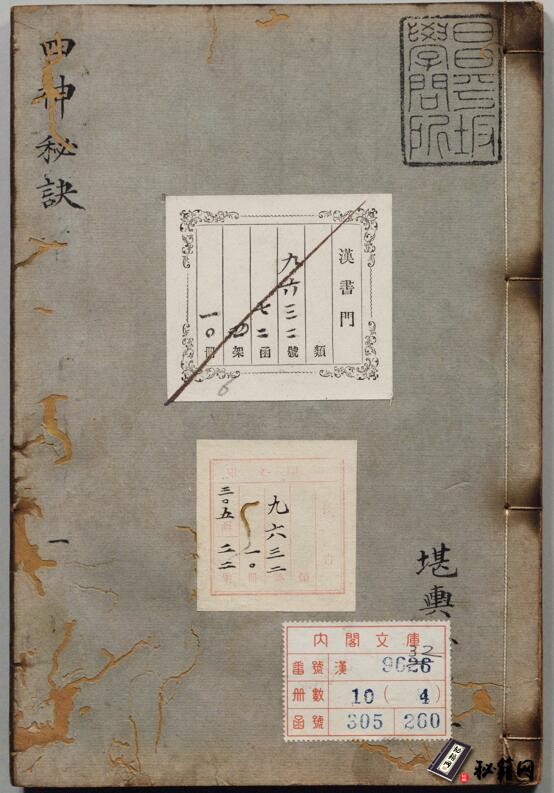 四神秘訣
一
昌平坂
學問所
漢書門
類
九六三二號
七二函
架
一〇冊
6
九六三二
一〇
三〇五
二二
類
冊
架
堪輿
内閣文庫
番號 漢 9626
32
册數 10 ( 4 )
函號 305 260
秘籍网